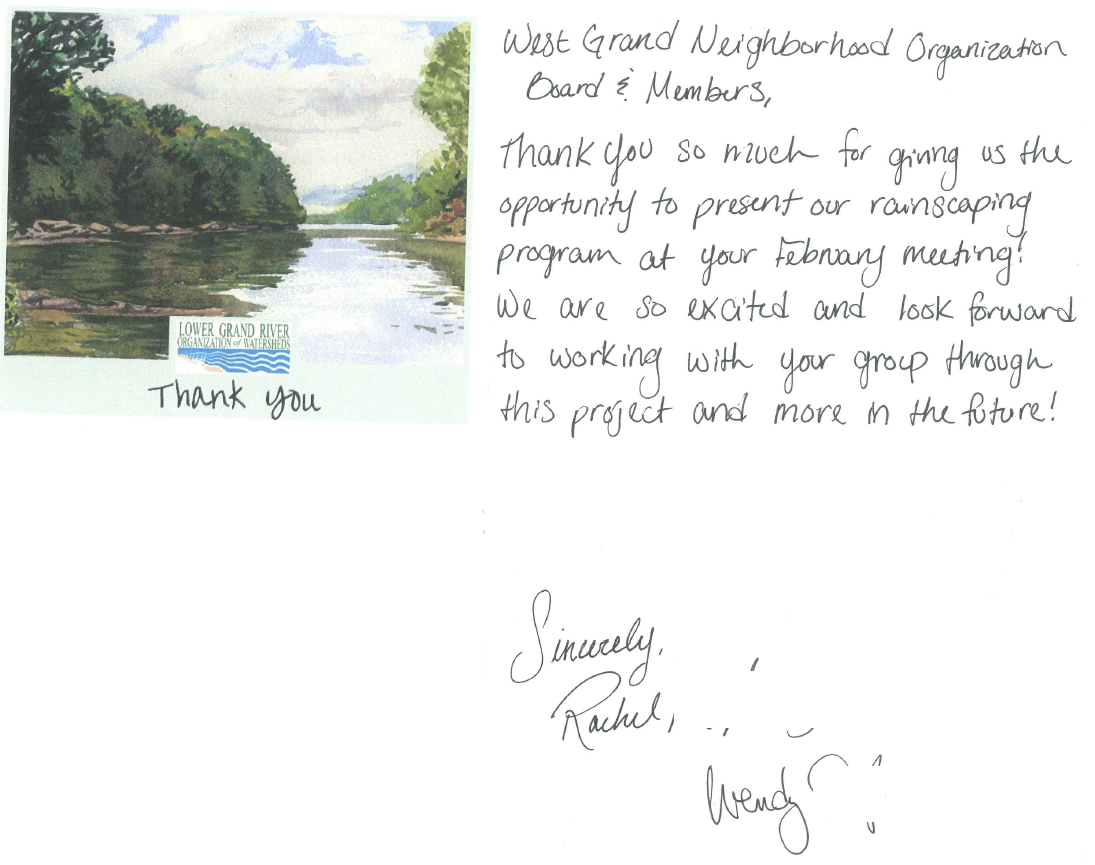 LOWER GRAND RIVER
ORGANIZATION of WATERSHEDS
Thank you
West Grand Neighborhood Organization
Board & Members,
Thank you so much for giving us the
opportunity to present our rainscaping
program at your February meeting!
We are so excited and look forward
to working with your group through
this project and more in the future!
Sincerely,
Rachel,
Wendy